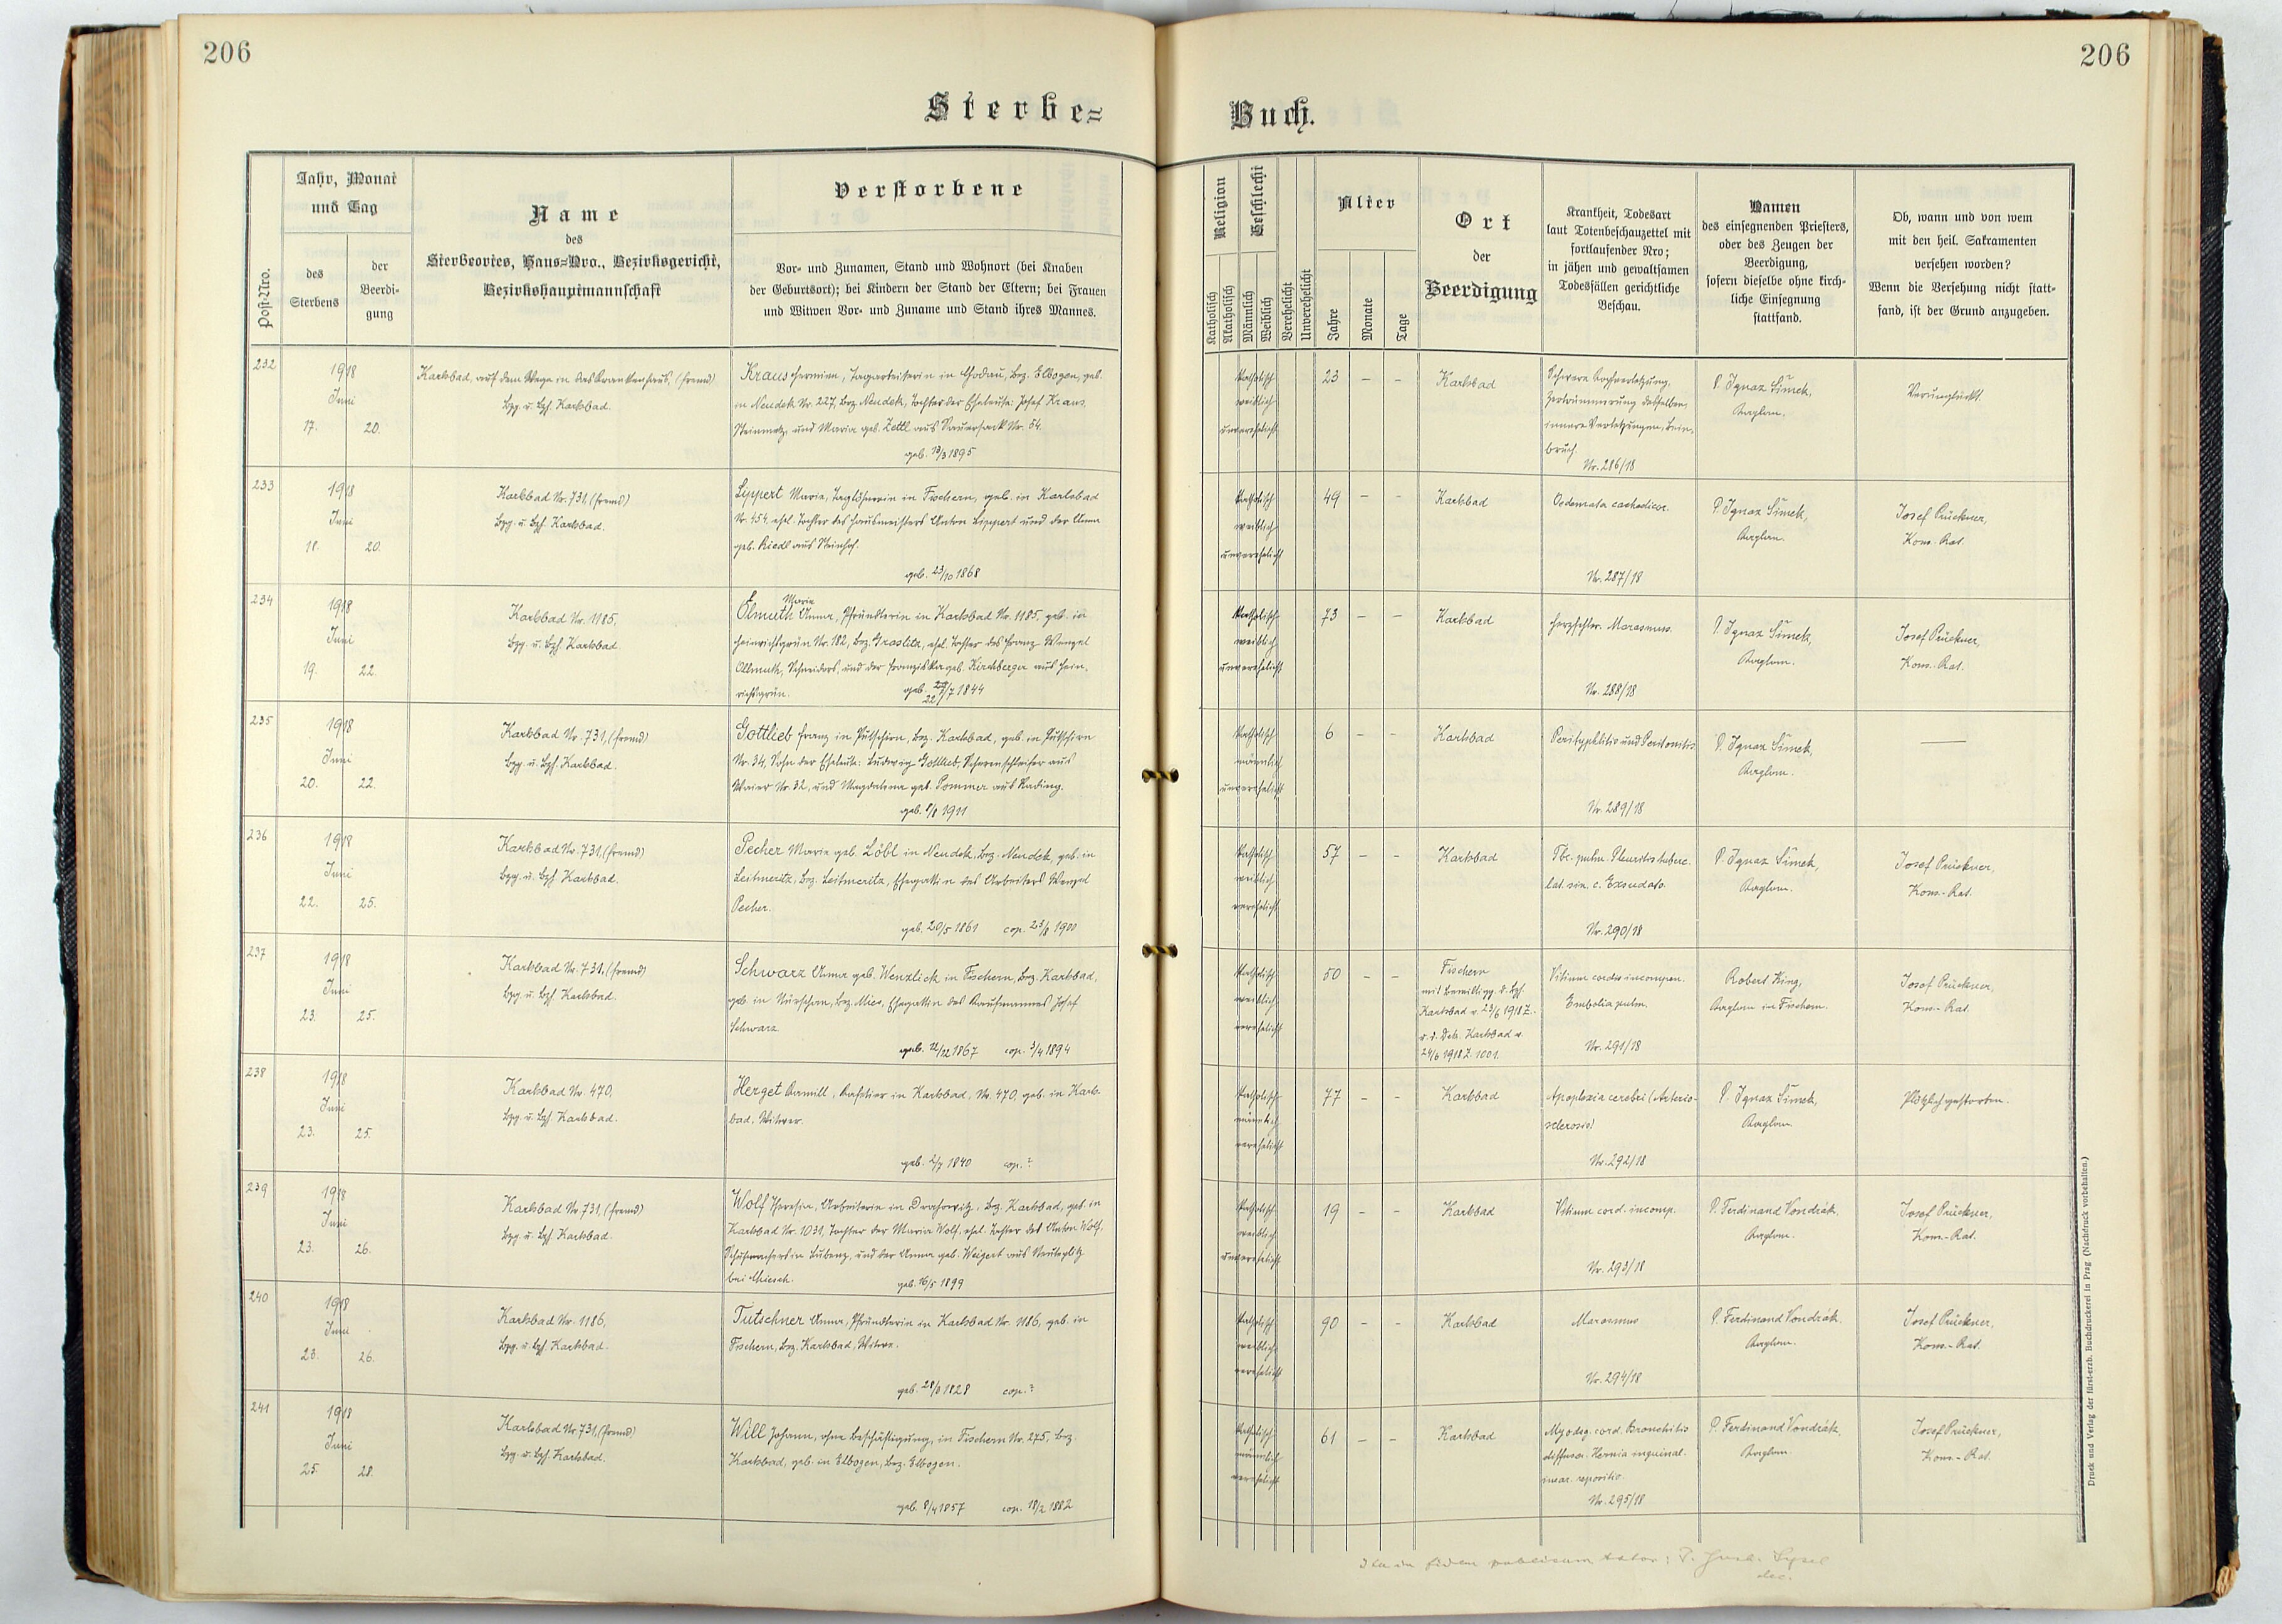 206
206
Sterbe=
Buch.
Post-Nro.
Jahr, Monat
und Tag
des
Sterbens
der
Beerdi-
gung
Name
des
Sterbeortes, Haus-Nro., Bezirksgericht,
Bezirkshauptmannschaft
Verstorbene
Vor- und Zunamen, Stand und Wohnort (bei Knaben
der Geburtsort); bei Kindern der Stand der Eltern; bei Frauen
und Witwen Vor- und Zuname und Stand ihres Mannes.
Religion
Katholisch
Akatholisch
Geschlecht
Männlich
Weiblich
Verehelicht
Unverehelicht
Alter
Jahre
Monate
Tage
Ort
der
Beerdigung
Krankheit, Todesart
laut Totenbeschauzettel mit
fortlaufender Nro;
in jähen und gewaltsamen
Todesfällen gerichtliche
Beschau.
Namen
des einsegnenden Priesters,
oder des Zeugen der
Beerdigung,
sofern dieselbe ohne kirch-
liche Einsegnung
stattfand.
Ob, wann und von wem
mit den heil. Sakramenten
versehen worden?
Wenn die Versehung nicht statt-
fand, ist der Grund anzugeben.
232
1918
Juni
17. 20.
Karlsbad, auf dem Wege in das Krankenhaus, (fremd)
Bzg. u. Bzh. Karlsbad.
Kraus Hermine, Tagarbeiterin in Chodau, Bez. Elbogen, geb.
in Neudek Nr. 227, Bez. Neudek, Tochter der Eheleute: Josef Kraus,
Steinmetz, und Maria geb. Zettl aus Sauersack Nr. 54.
geb. 13/3 1895
katholisch
weiblich
unverehelicht
23 – –
Karlsbad
Schwere Kopfverletzung,
Zertrümmerung desselben,
innere Verletzungen, Bein-
bruch.
Nr. 286/18
P. Ignaz Šimek,
Kaplan.
Verunglückt.
233
1918
Juni
18. 20.
Karlsbad Nr. 731, (fremd)
Bzg. u. Bzh. Karlsbad.
Lippert Marie, Taglöhnerin in Fischern, geb. in Karlsbad
Nr. 454, ehel. Tochter des Hausmeisters Anton Lippert und der Anna
geb. Riedl aus Steinhof.
geb. 23/10 1868
katholisch
weiblich
unverehelicht
49 – –
Karlsbad
Oedemata cachecticor.
Nr. 287/18
P. Ignaz Šimek,
Kaplan.
Josef Prückner,
Kons.-Rat.
234
1918
Juni
19. 22.
Karlsbad Nr. 1185,
Bzg. u. Bzh. Karlsbad.
Maria
Olmuth Anna, Pfründlerin in Karlsbad Nr. 1185, geb. in
Heinrichsgrün Nr. 182, Bez. Graslitz, ehel. Tochter des Franz Wenzel
Ollmuth, Schneiders, und der Franziska geb. Kirchberger aus Hein-
richsgrün.
geb. 22/7 1844
katholisch
weiblich
unverehelicht
73 – –
Karlsbad
Herzfehler. Marasmus.
Nr. 288/18
P. Ignaz Šimek,
Kaplan.
Josef Prückner,
Kons.-Rat.
235
1918
Juni
20. 22.
Karlsbad Nr. 731, (fremd)
Bzg. u. Bzh. Karlsbad.
Gottlieb Franz in Putschirn, Bez. Karlsbad, geb. in Putschirn
Nr. 34, Sohn der Eheleute: Ludwig Gottlieb, Scherenschleifer aus
Maier Nr. 32, und Magdalena geb. Pommer aus Rading.
geb. 1/8 1911
katholisch
männlich
unverehelicht
6 – –
Karlsbad
Perityphlitis und Peritonitis
Nr. 289/18
P. Ignaz Šimek,
Kaplan.
—
236
1918
Juni
22. 25.
Karlsbad Nr. 731, (fremd)
Bzg. u. Bzh. Karlsbad.
Pecher Marie geb. Löbl in Neudek, Bez. Neudek, geb. in
Leitmeritz, Bez. Leitmeritz, Ehegattin des Arbeiters Wenzel
Pecher.
geb. 20/5 1861 cop. 25/8 1900
katholisch
weiblich
verehelicht
57 – –
Karlsbad
Tbc. pulm. Pleuritis tuberc.
lat. sin. c. Exsudato.
Nr. 290/18
P. Ignaz Šimek,
Kaplan.
Josef Prückner,
Kons.-Rat.
237
1918
Juni
23. 25.
Karlsbad Nr. 731, (fremd)
Bzg. u. Bzh. Karlsbad.
Schwarz Anna geb. Wenzlick, in Fischern, Bez. Karlsbad,
geb. in Nürschan, Bez. Mies, Ehegattin des Kaufmannes Josef
Schwarz
geb. 12/12 1867 cop. 3/4 1894
katholisch
weiblich
verehelicht
50 – –
Fischern
mit Bewilligg. d. Bzh.
Karlsbad v. 23/6 1918 Z.
u. d. Dek. Karlsbad v.
24/6 1918 Z. 1001.
Vitium cordis incompen.
Embolia pulm.
Nr. 291/18
Robert King,
Kaplan in Fischern.
Josef Prückner,
Kons.-Rat.
238
1918
Juni
23. 25.
Karlsbad Nr. 470,
Bzg. u. Bzh. Karlsbad.
Herget Kamill, Kassier in Karlsbad, Nr. 470, geb. in Karls-
bad, Witwer.
geb. 2/7 1840 cop. ?
katholisch
männlich
verehelicht
77 – –
Karlsbad
Apoplexia cerebri (Arterio-
sclerosis)
Nr. 292/18
P. Ignaz Šimek,
Kaplan.
Plötzlich gestorben.
239
1918
Juni
23. 26.
Karlsbad Nr. 731, (fremd)
Bzg. u. Bzh. Karlsbad.
Wolf Theresia, Arbeiterin in Drahowitz, Bez. Karlsbad, geb. in
Karlsbad Nr. 1031, Tochter der Maria Wolf, ehel. Tochter des Anton Wolf,
Schuhmachers in Lubenz, und der Anna geb. Weigert aus
bei Chiesch.
geb. 16/5 1899
katholisch
weiblich
unverehelicht
19 – –
Karlsbad
Vitium cord. incomp.
Nr. 293/18
P. Ferdinand Vondrák,
Kaplan.
Josef Prückner,
Kons.-Rat.
240
1918
Juni
23. 26.
Karlsbad Nr. 1186,
Bzg. u. Bzh. Karlsbad.
Tutschner Anna, Pfründlerin in Karlsbad Nr. 1186, geb. in
Fischern, Bez. Karlsbad, Witwe.
geb. 28/1 1828 cop. ?
katholisch
weiblich
verehelicht
90 – –
Karlsbad
Marasmus
Nr. 294/18
P. Ferdinand Vondrák,
Kaplan.
Josef Prückner,
Kons.-Rat.
241
1918
Juni
25. 28.
Karlsbad Nr 731, (fremd)
Bzg. u. Bzh. Karlsbad.
Will Johann, ohne Beschäftigung, in Fischern Nr. 275, Bez.
Karlsbad, geb. in Elbogen, Bez. Elbogen.
geb. 8/4 1857 cop. 18/2 1882
katholisch
männlich
verehelicht
61 – –
Karlsbad
Myodeg. cord. Bronchitis
diffusa. Hernia inguinal.
incar. repositio.
Nr. 295/18
P. Ferdinand Vondrák,
Kaplan
Josef Prückner,
Kons.-Rat.
Druck und Verlag der fürst-erzb. Buchdruckerei in Prag (Nachdruck vorbehalten.)
Ita in fidem publicam testor: P.
dec.